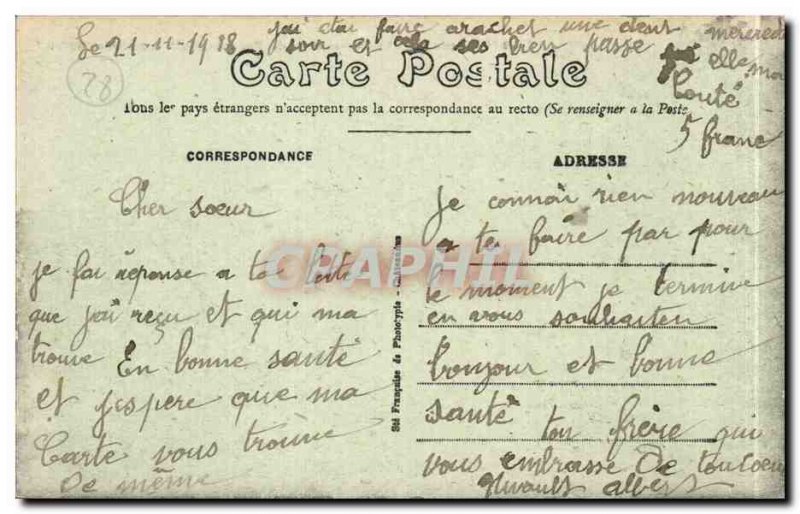 Le 21-11-1918
28
j'ai étai faire arachet une dent mercredi
soir et cela ses bien passe
elle ma
couté
5 franc
Carte Postale
Tous les pays étrangers n'acceptent pas la correspondance au recto (Se renseigner a la Poste
CORRESPONDANCE
Cher soeur
je fai réponse a ta
que j'ai reçu et qui ma
trouve En bonne santé
et j'espere que ma
Carte vous trouve
De même
Sté Française de Phototypie -
CPAPHIL
ADRESSE
Je connai rien nouveau
a te faire par pour
le moment je termine
en vous souhaiten
bonjour et bonne
santé
ton frère qui
vous embrasse De toucoeur
albert